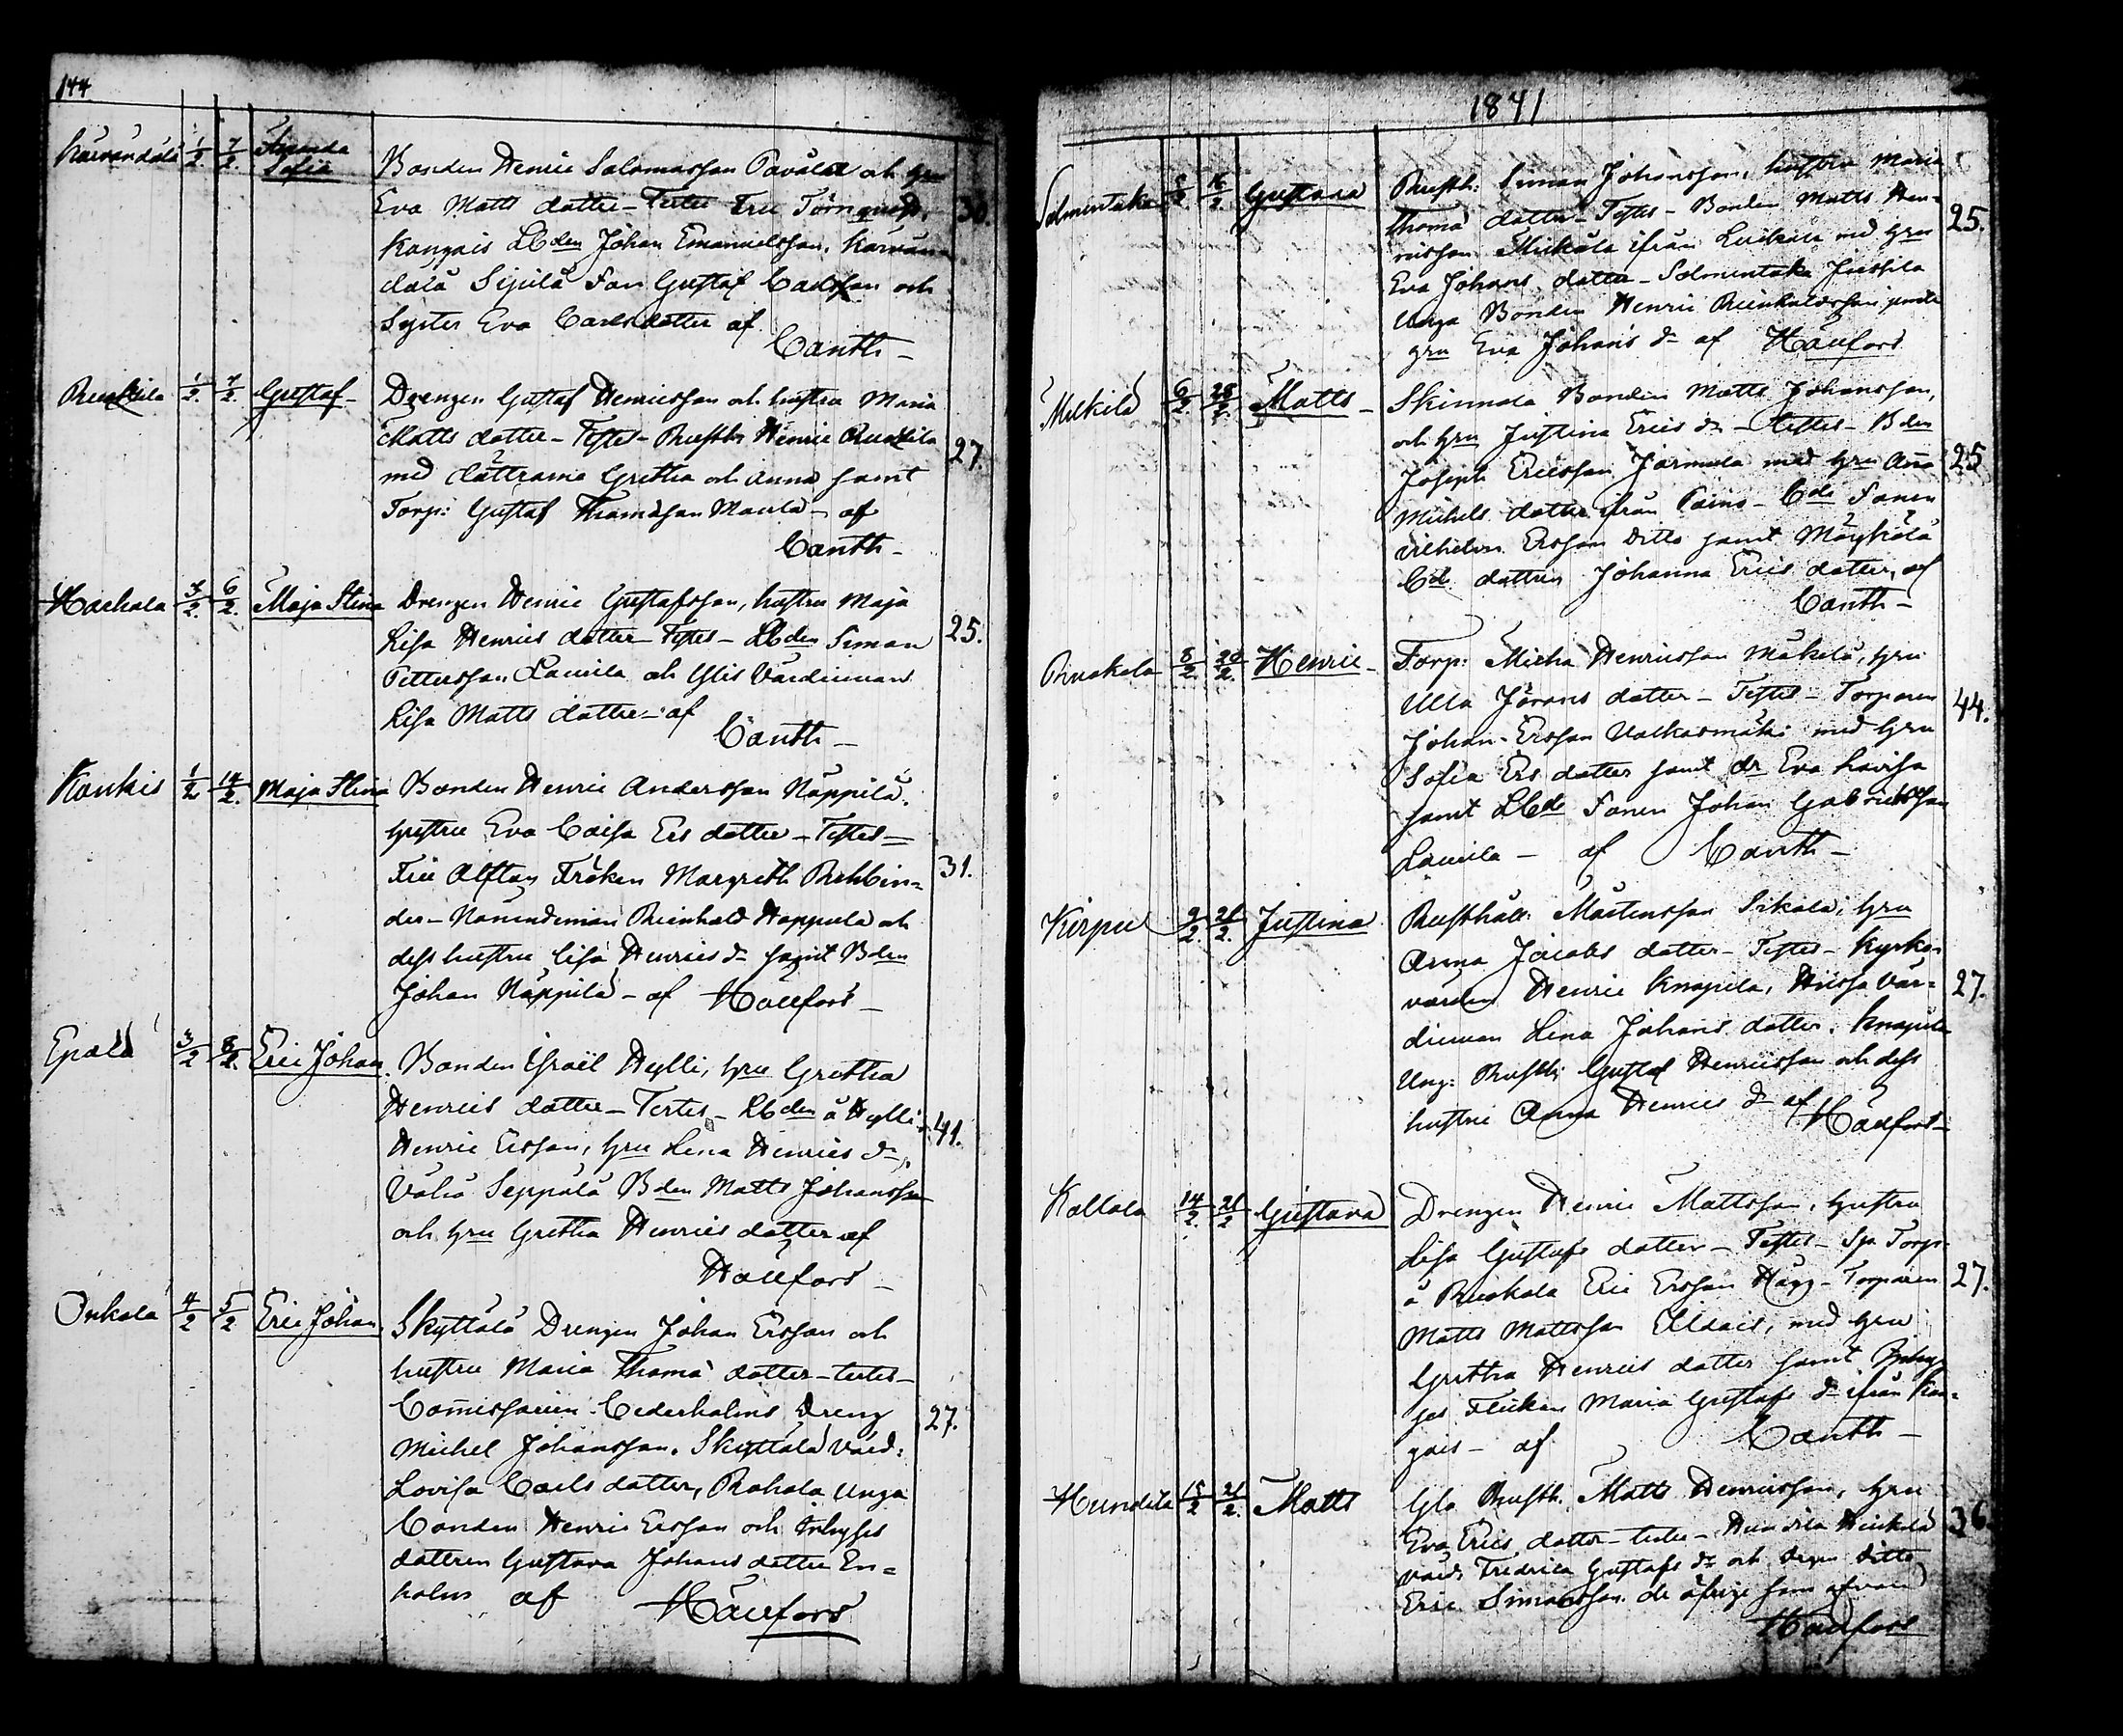 144
Karvandala 1/2. 7/2. Amanda
Sofia
Bonden Henric Salomonsson Pavola och hru
Eva Matts dotter – Testes Fru Törnqvist,
Kangais Lbden Johan Emanuelsson, Karvan-
dala Sipilä Son Gustaf Carlsson och
Syster Eva Carlsdotter af
Canth –
30.
Ruskila 1/2. 7/2. Gustaf –
Drengen Gustaf Henricsson och hustru Maria
Matts dotter – Testes – Rusth: Henric Ruskila
med döttrarna Gretha och Anna samt
Torp: Gustaf Thomasson Manla – af
Canth –
27.
Haehala 3/2. 6/2. Maja Stina
Drengen Henric Gustafsson, hustru Maja
Lisa Henrics dotter – Testes – Lbden Simon
Pettersson Laurila och Ylis Värdinnan
Lisa Matts dotter – af
Canth –
25.
Konkis 1/2 14/2. Maja Stina
Bonden Henric Andersson Näppilä,
hustru Eva Caisa Ers dotter – Testes –
Fru Alftan Fröken Margreth Rehbin-
der – Nämndeman Reinhold Hoppula och
dess hustru Lisa Henrics dr samt Bden
Johan Näppilä – af Häufors –
31.
Epälä 3/2 8/2. Eric Johan
Bonden Israël Hylli, hru Gretha
Henrics dotter – Testes – Lbden å Hylli
Henric Ersson, hru Lena Henrics dr,
Vähä Seppälä Bden Matts Johansson
och hru Gretha Henrics dotter af
Häufors –
41.
Onkala 4/2 5/2 Eric Johan
Skyttälä Drengen Johan Ersson och
hustru Maria Thomæ dotter – testes –
Comissarien Cederholms Dreng
Michel Johansson, Skyttälä värd:
Lovisa Carls dotter, Rahola unga
Bonden Henric Ersson och Inhyses
dottren Gustava Johans dotter En-
holm af Häufors
27.
1841
Salmentaka 5/2. 16/2. Gustava
Rusth: Simon Johansson, hustru Maria
Thomæ dotter – Testes – Bonden Matts Hen-
ricsson Mickola ifrån Luikala med hru
Eva Johans dotter – Salmentaka Jussila
Unga Bonden Henric Reinholdsson jemte
hru Eva Johans dr af Häufors
25.
Mickilä 6/2. 28/2. Matts –
Skinnala Bonden Matts Johansson,
och hru Justina Erics dr – testes – Bden
Joseph Ericsson Jarmula med hru Anna
Michels dotter ifrån Paino – Bde Sonen
Vilhelm Ersson ditto samt Mäyhälä
Bde dottren Johanna Erics dotter, af
Canth –
25
Ruokola 8/2. 20/2. Henric –
Torp: Micha Henricsson Mäkelä, hru
Ulla Jörans dotter – Testes – Torparen
Johan Ersson Valkasmäki med hru
Sofia Ers dotter samt dr Eva Lovisa
samt Lbde Sonen Johan Gabrielsson
Laurila – af Canth –
44.
Kirpu 9/2. 21/2. Justina
Rusthåll: Mårtensson Sikala, hru
Anna Jacobs dotter – Testes – Kyrko-
värden Henric Knapila, Hiissa vär-
dinnan Lena Johans dotter, Knapila
Ung: Rusth: Gustaf Henricsson och dess
hustru Anna Henrics dr af Häufors –
27.
Kallala 14/2. 21/2 Gustava
Drengen Henric Mattsson, hustru
Lisa Gustafs dotter – Testes – Sp. Torp:
å Ruokola Eric Ersson Hägg – Torparen
Matts Mattsson Äldais, med hru
Gretha Henrics dotter samt Inhy-
ses Flickan Maria Gustafs dr ifrån Kan-
gais – af Canth –
27.
Hundila 15/2 21/2. Matts
Gla Rusth. Matts Henricsson, hru
Eva Erics dotter – teste – Hundila Heickilä
värd: Fredrica Gustafs dr och Dgen ditto
Eric Simonsson. de öfrige som ofvan
Häufors
36.